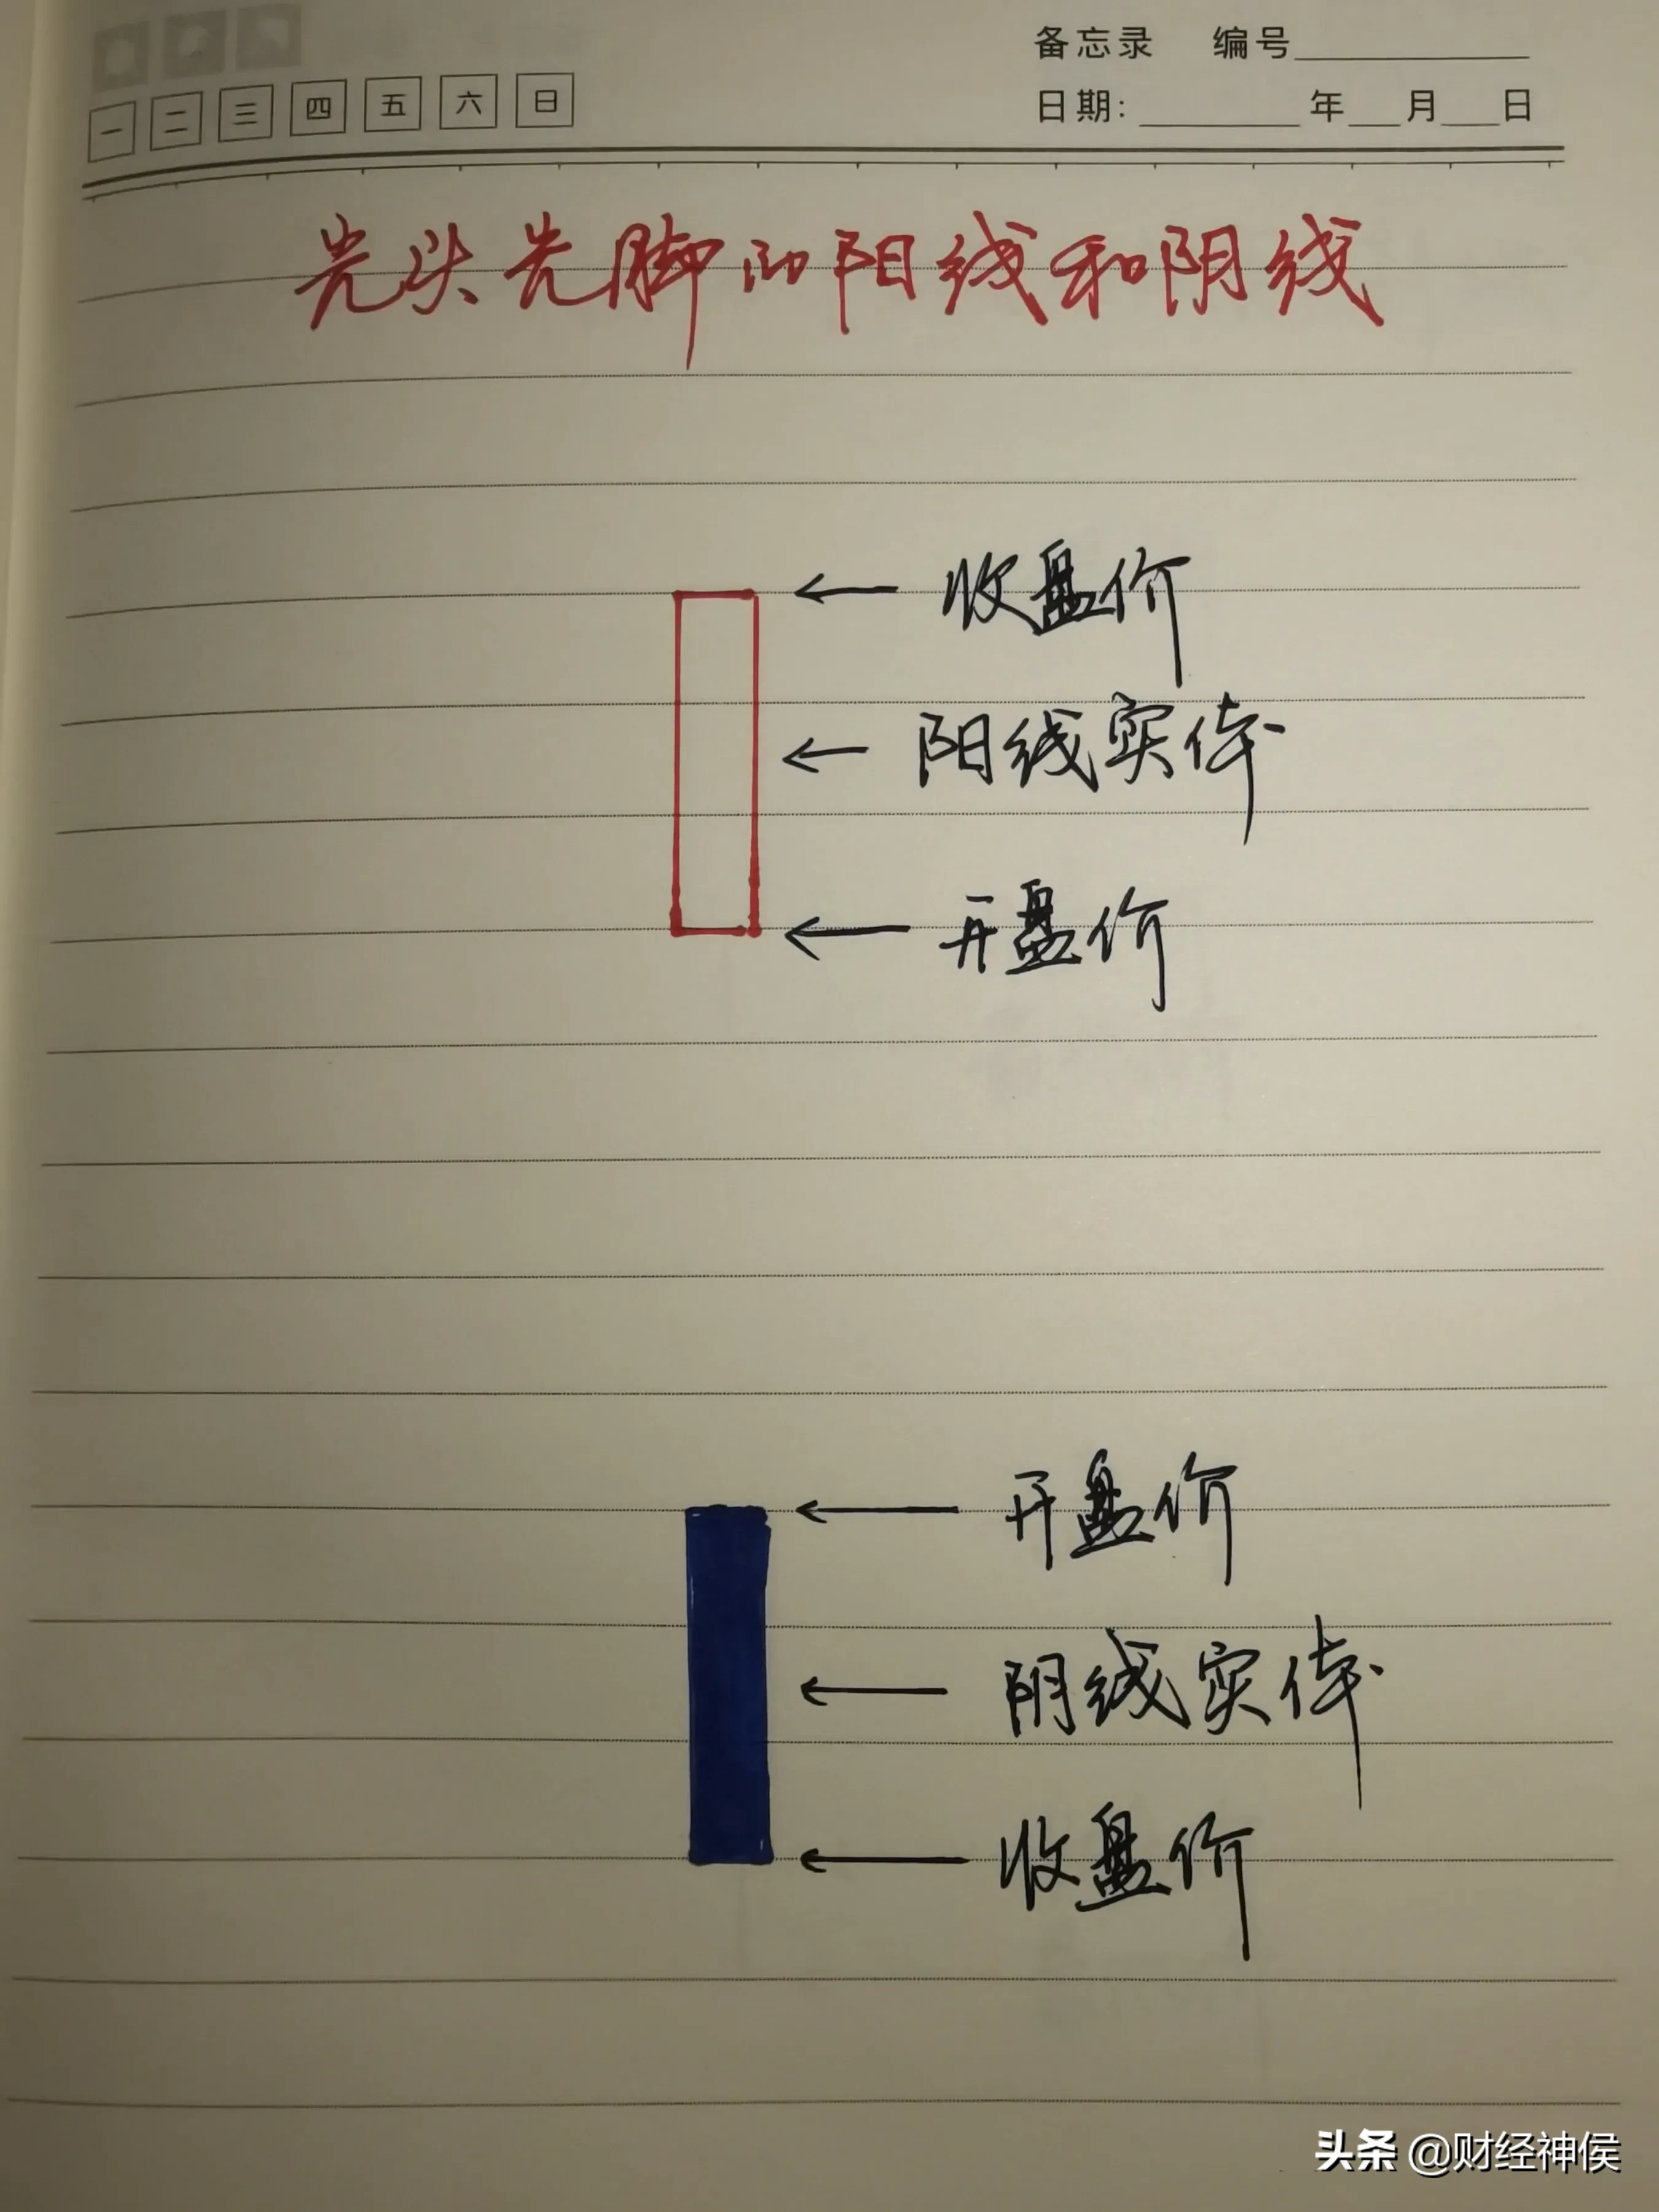 备忘录 编号
一 二 三 四 五 六 日
日期: 年 月 日
光头光脚的阳线和阴线
收盘价
阳线实体
开盘价
开盘价
阴线实体
收盘价
头条 @财经神侯